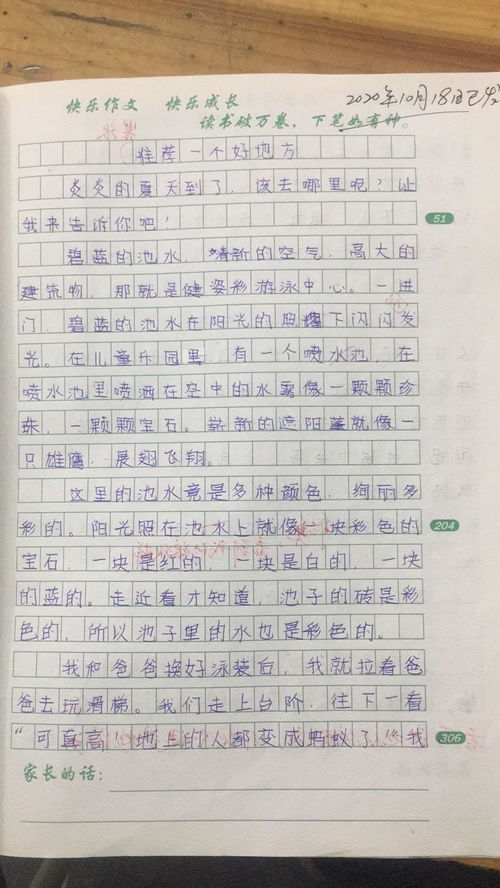 快乐作文 快乐成长
2020年10月18日已发
读书破万卷，下笔如有神。
推荐一个好地方
炎炎的夏天到了，该去哪里呢？让
我来告诉你吧！
51
碧蓝的池水，清新的空气，高大的
建筑物，那就是健姿彩游泳中心。一进
门，碧蓝的池水在阳光的照耀下闪闪发
光。在儿童乐园里，有一个喷水池，在
喷水池里喷洒在空中的水雾像一颗颗珍
珠，一颗颗宝石。崭新的遮阳蓬就像一
只雄鹰，展翅飞翔。
这里的池水竟是多种颜色，绚丽多
彩的。阳光照在池水上就像一块彩色的
204
宝石，一块是红的，一块是白的，一块
的蓝的。走近看才知道，池子的砖是彩
色的，所以池子里的水也是彩色的。
我和爸爸换好泳装后，我就拉着爸
爸去玩滑梯。我们走上台阶，往下一看
“可真高！地上的人都变成蚂蚁了！”我
306
家长的话：